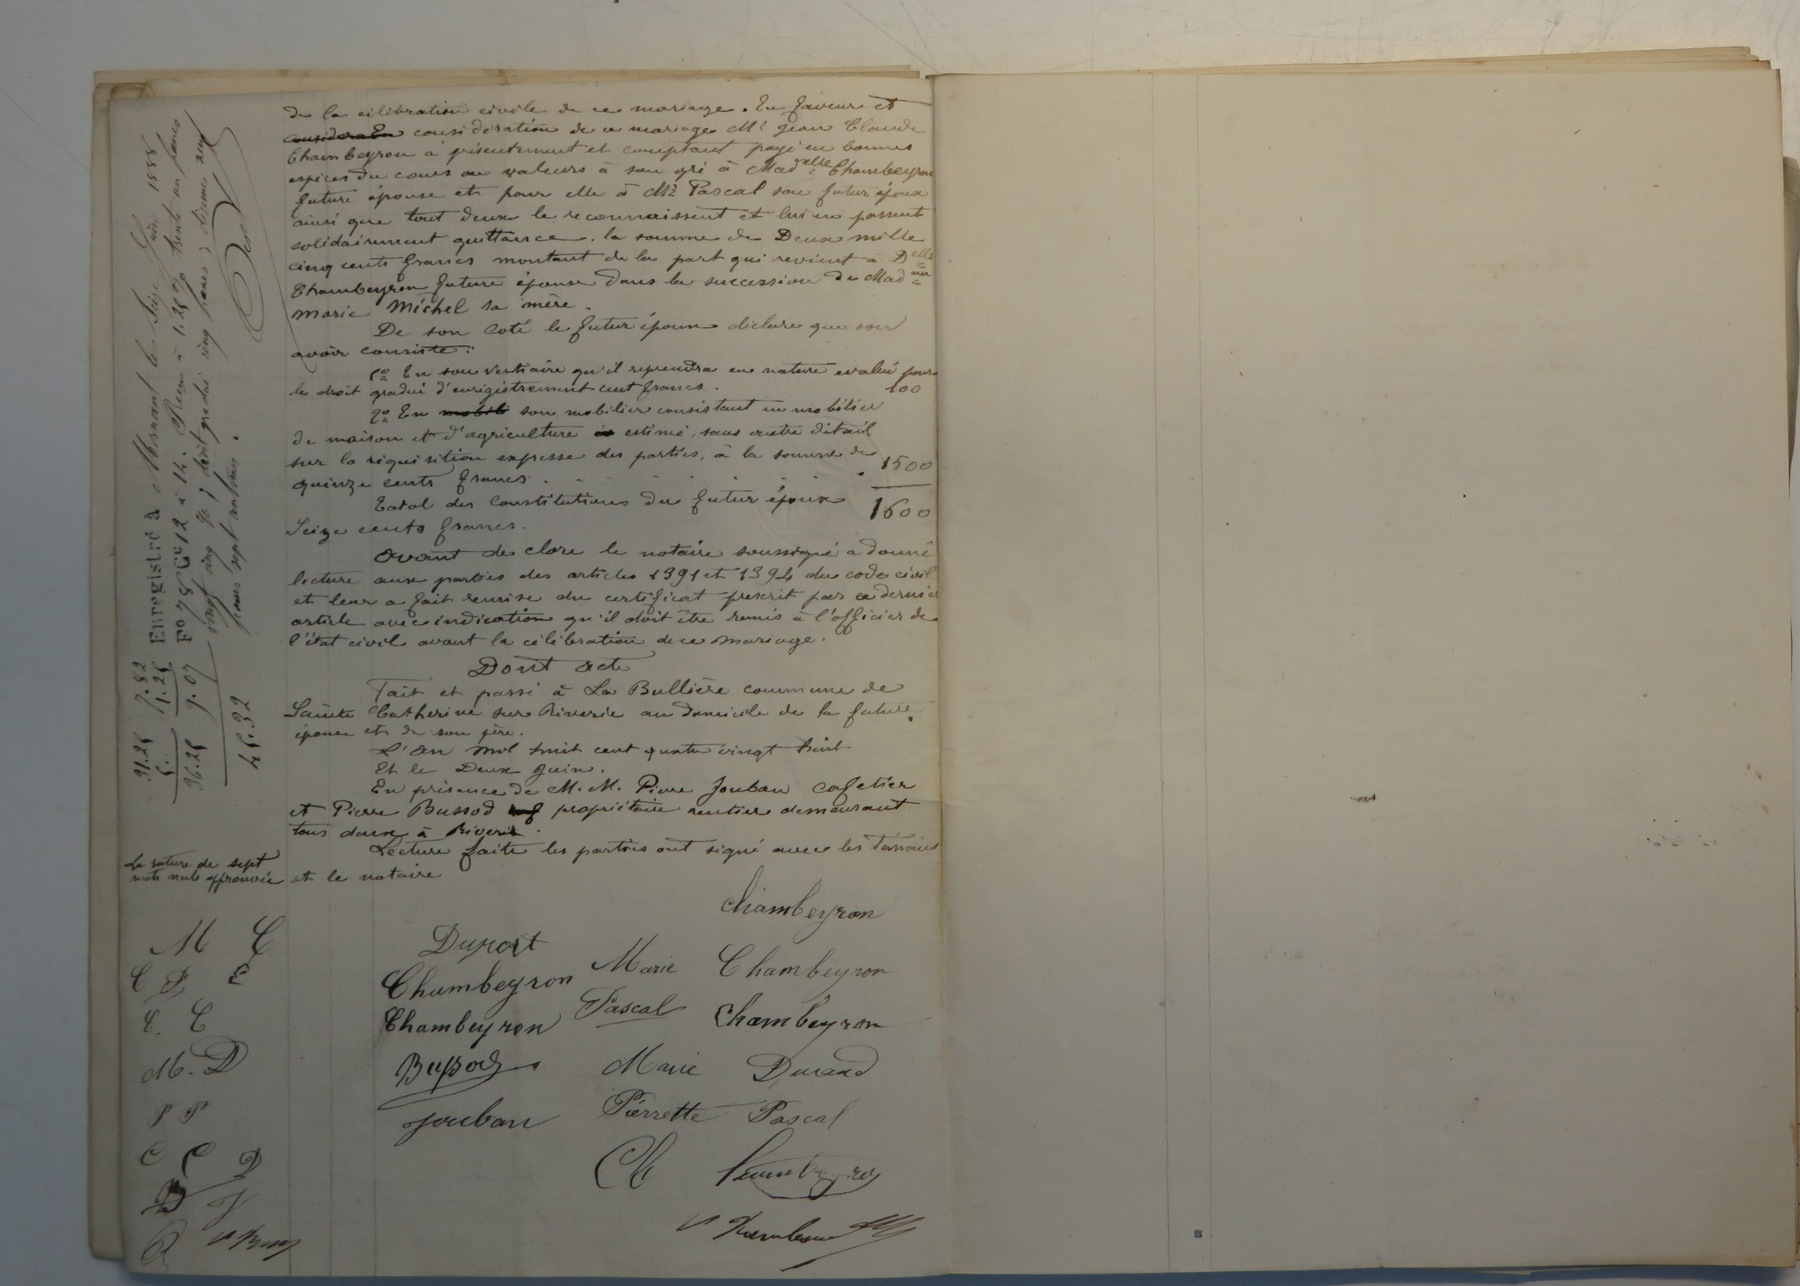 de la célébration civile de ce mariage. En faveur et
considération de ce mariage Mr Jean Claude
Chambeyron a présentement et comptant payé en bonnes
espèces du cours ou valeurs à son gré à Madelle Chambeyron
future épouse et pour elle à Mr Pascal son futur époux
ainsi que tout deux le reconnaissent et lui en passent
solidairement quittance, la somme de Deux mille
cinq cents francs montant de la part qui revient à Delle
Chambeyron future épouse dans la succession de Madame
marie Michel sa mère.
De son coté le futur époux déclare que son
avoir consiste :
1o En son vestiaire qu'il reprendra en nature evalué pour
le droit gradué d'enrigistrement cent francs. 100
2o En son mobilier consistant en mobilier
de maison et d'agriculture estimé, sans autre détail
sur la réquisition expresse des parties, à la somme de
quinze cents francs. 1500
Total des constitutions du futur époux 1600
Seize cents francs.
Avant de clore le notaire soussigné a donné
lecture aux parties des articles 1391 et 1394 du code civil
et leur a fait remise du certificat prescrit par ce dernier
article avec indication qu'il doit être remis à l'officier de
l'état civil avant la célébration de ce mariage.
Dont acte
Fait et passé à La Bullière commune de
Sainte Catherine sur Riverie au domicile de la future
épouse et de son père.
L'an mil huit cent quatre vingt huit
Et le Deux Juin.
En présence de M. M. Pierre Jouban cafetier
et Pierre Bussod propriétaire rentier demeurant
tous deux à Riverie.
Lecture faite les parties ont signé avec les témoins
et le notaire
La rature de sept
mots nuls approuvée
Enregistré à Mornant le Seize Juin 1888
Fo 78 Co 12 à 14. Reçu à 1.25 % trente un francs
vingt cinq cs, droit gradué cinq francs, décime neuf
francs sept centimes.
31.25 7.82
5.. 1.25
36.25 9.07
45.32
Chambeyron
M C Duport
Marie Chambeyron
Chambeyron
Pascal Chambeyron
C. C Chambeyron
M. D Bussod Marie Durand
P P Jouban Pierrette Pascal
C C D